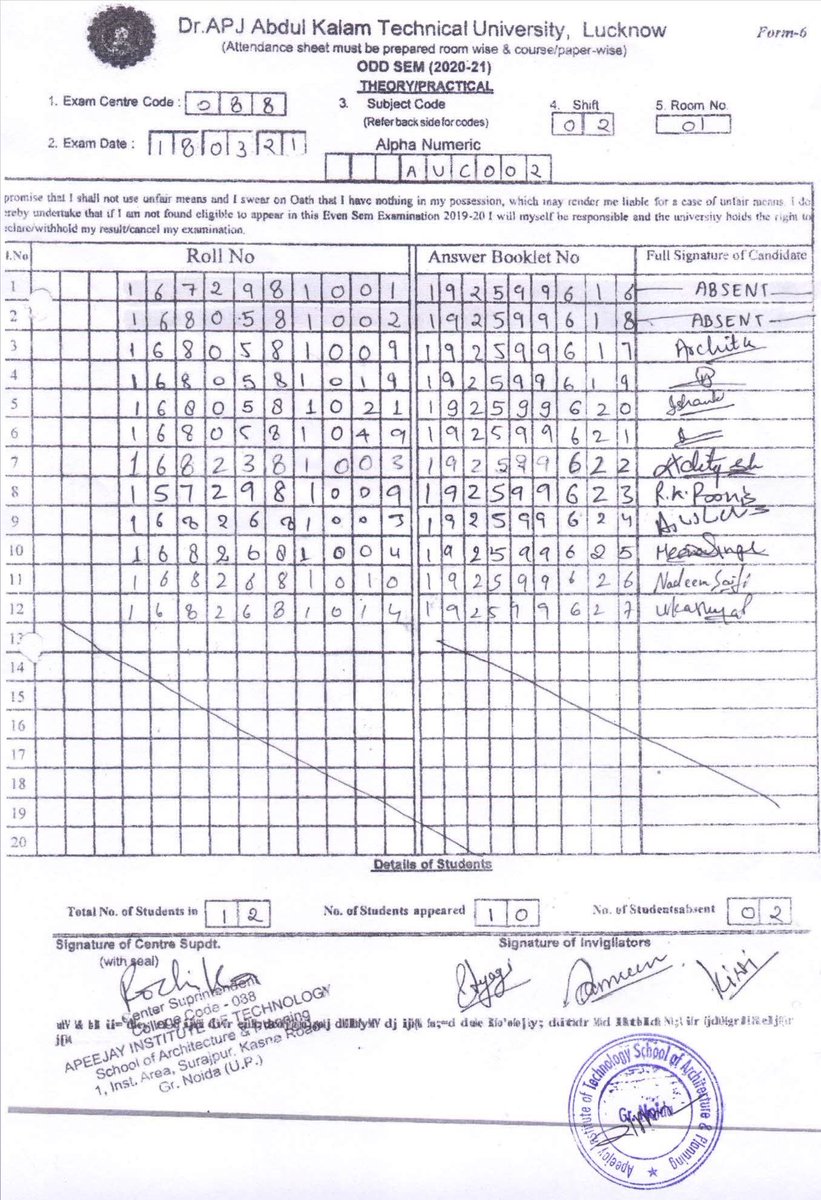 Dr.APJ Abdul Kalam Technical University, Lucknow
Form-6
(Attendance sheet must be prepared room wise & course/paper-wise)
ODD SEM (2020-21)
THEORY/PRACTICAL
1. Exam Centre Code : 088
3. Subject Code
4. Shift
5. Room No.
(Refer back side for codes)
02
01
2. Exam Date : 180321
Alpha Numeric
AUC002
promise that I shall not use unfair means and I swear on Oath that I have nothing in my possession, which may render me liable for a case of unfair means. I do
ereby undertake that if I am not found eligible to appear in this Even Sem Examination 2019-20 I will myself be responsible and the university holds the right to
eclare/withhold my result/cancel my examination.
l.No Roll No Answer Booklet No Full Signature of Candidate
1 1672981001 192599616 ABSENT
2 1680581002 192599618 ABSENT
3 1680581009 192599617 Archita
4 1680581019 192599619
5 1680581021 192599620
6 1680581049 192599621
7 1682381003 192599622
8 1572981009 192599623 R.K.
9 1682681003 192599624
10 1682681004 192599625
11 1682681010 192599626 Nadeem Saifi
12 1682681014 192599627
13
14
15
16
17
18
19
20
Details of Students
Total No. of Students in 12 No. of Students appeared 10 No. of Studentsabsent 02
Signature of Centre Supdt. Signature of Invigliators
(with seal)
Center Suprintendent
College Code - 038
APEEJAY INSTITUTE OF TECHNOLOGY
School of Architecture & Planning
1, Inst. Area, Surajpur, Kasne Road
Gr. Noida (U.P.)
Apeejay Institute of Technology School of Architecture & Planning
Gr. Noida